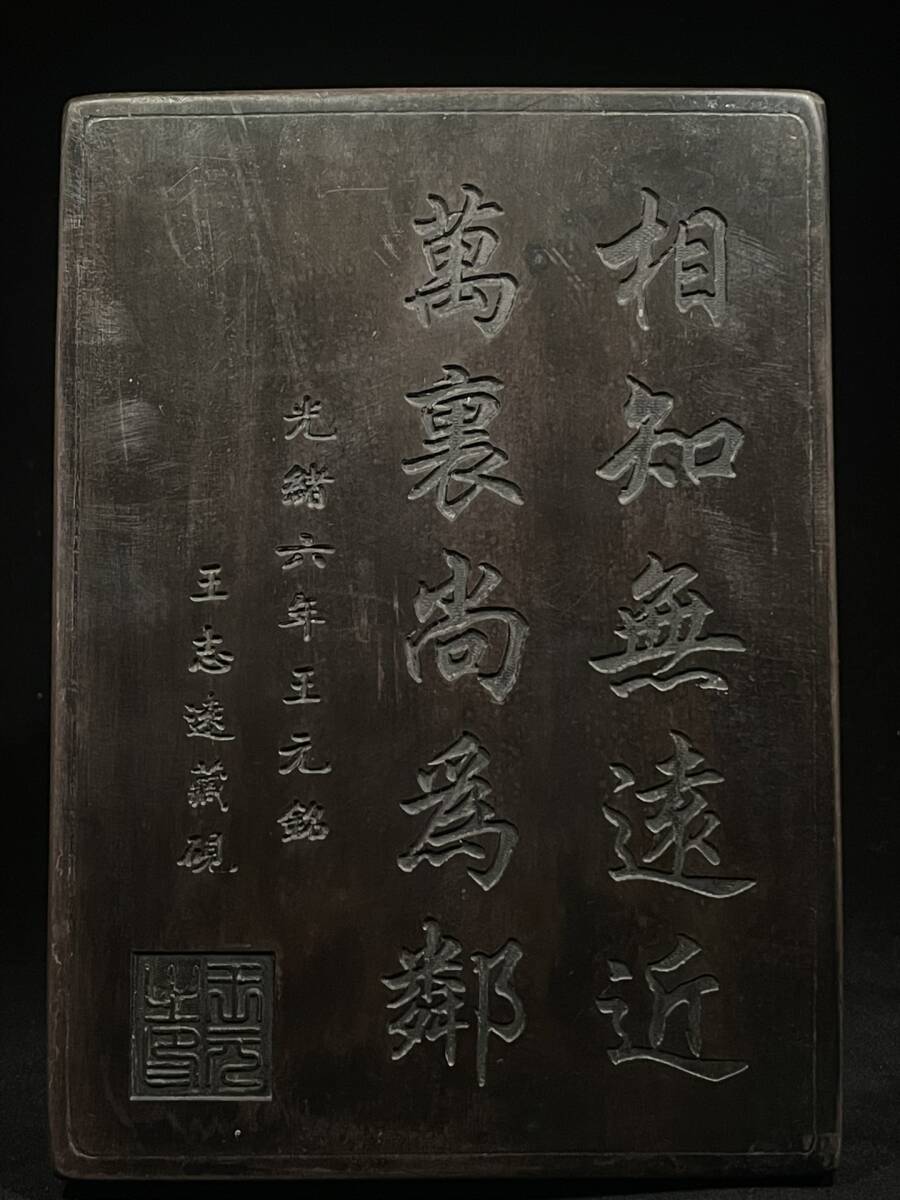 相知無遠近
萬裏尚為鄰
光緒六年王元銘
王志遠藏硯
王元之印